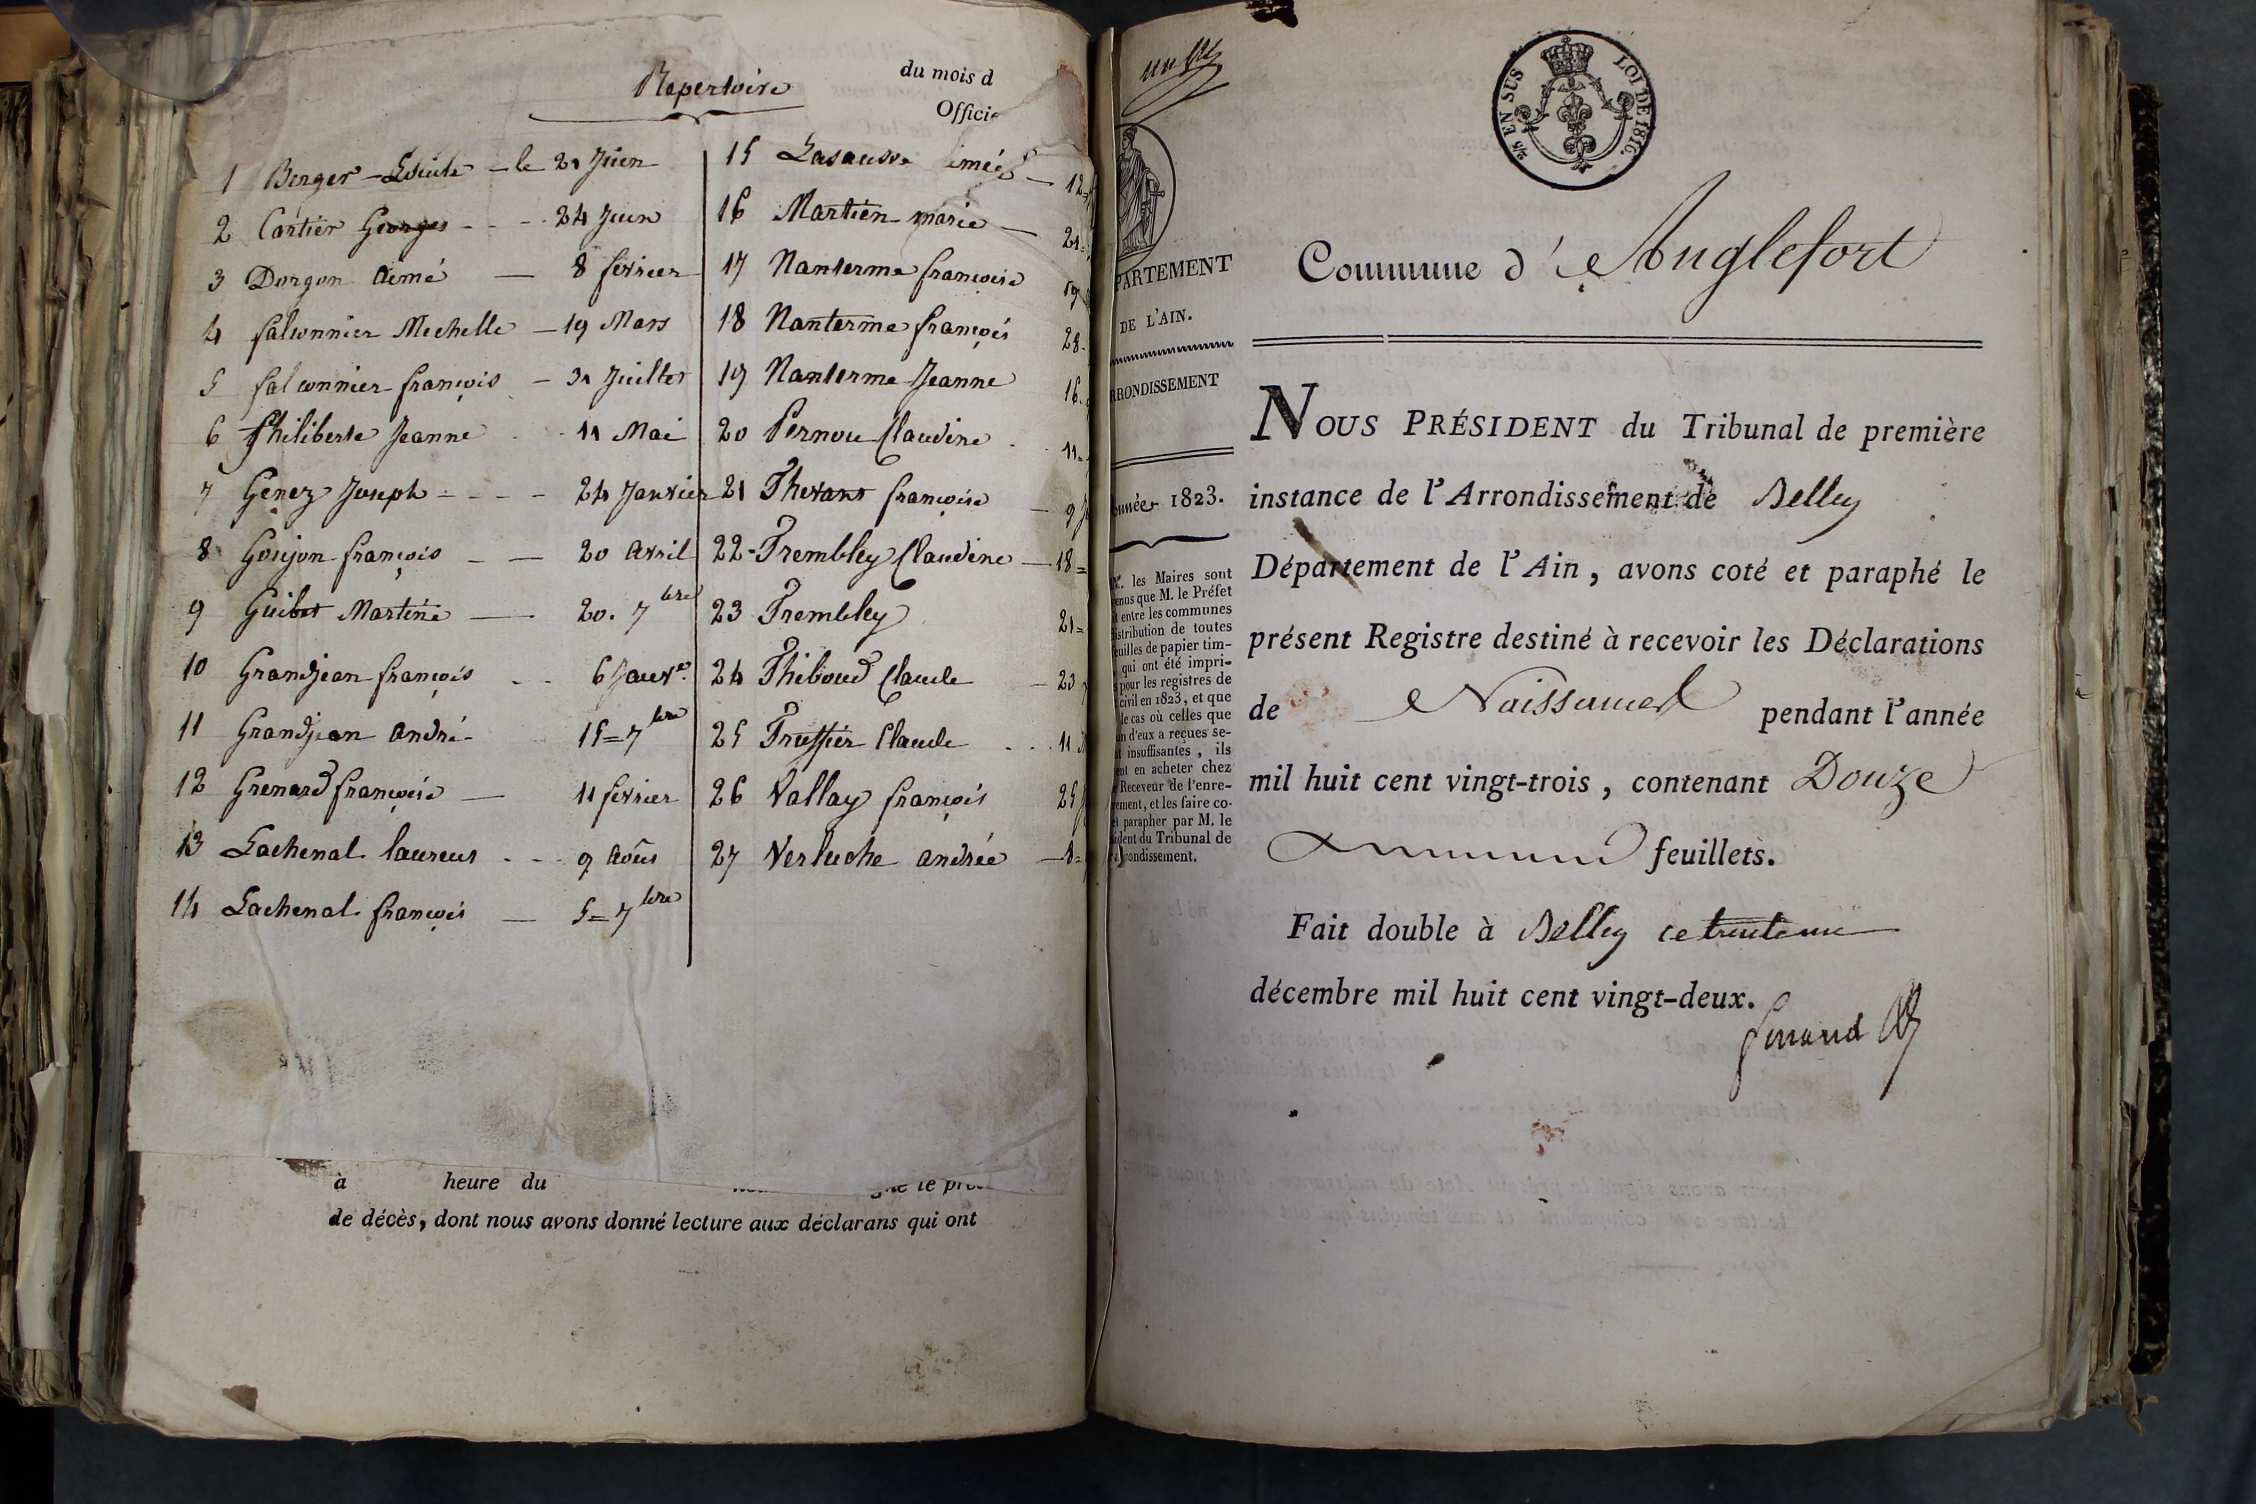 Repertoire
du mois d
Offici
1 Berger - le 21 Juin
2 Cartier Georges - - - 24 Juin
3 Dorgon aimé — 8 février
4 falconnier Mechelle — 19 Mars
5 falconnier françois — 31 Juillet
6 Philiberte Jeanne - - 11 Mai
7 Genez Joseph - - - - 24 Janvier
8 Goujon françois — — 20 avril
9 Guibet Martine — 20. 7bre
10 Grandjean françois - - 6 Janvr.
11 Grandjean andré - 15 = 7bre
12 Grenard françoise — 11 février
13 Lachenal laurens - - - 9 Août
14 Lachenal françois — 5 = 7bre
15 Lasausse aimée — 12 =
16 Martin marie — 21 =
17 Nanterme françoise 19
18 Nanterme françois 28.
19 Nanterme Jeanne 16.
20 Pernou Claudine - 11 =
21 Thevant françoise — 9
22 - Trembley Claudine — 18 =
23 Trembley 21 =
24 Thiboud Claude — 23
25 Truffier Claude . . . 11
26 Vallay françois 25
27 Verluche andrée — 8 =
à heure du
de décès, dont nous avons donné lecture aux déclarans qui ont
EN SUS LOI DE 1816.
PARTEMENT
DE L'AIN.
RRONDISSEMENT
nnée 1823.
les Maires sont
enus que M. le Préfet
t entre les communes
istribution de toutes
euilles de papier tim-
qui ont été impri-
s pour les registres de
civil en 1823, et que
le cas où celles que
un d'eux a reçues se-
t insuffisantes, ils
ent en acheter chez
Receveur de l'enre-
ement, et les faire co-
et parapher par M. le
ident du Tribunal de
rondissement.
Commune d'Anglefort
NOUS PRÉSIDENT du Tribunal de première
instance de l'Arrondissement de Belley
Département de l'Ain, avons coté et paraphé le
présent Registre destiné à recevoir les Déclarations
de Naissances pendant l'année
mil huit cent vingt-trois, contenant Douze
feuillets.
Fait double à Belley ce trente un
décembre mil huit cent vingt-deux.